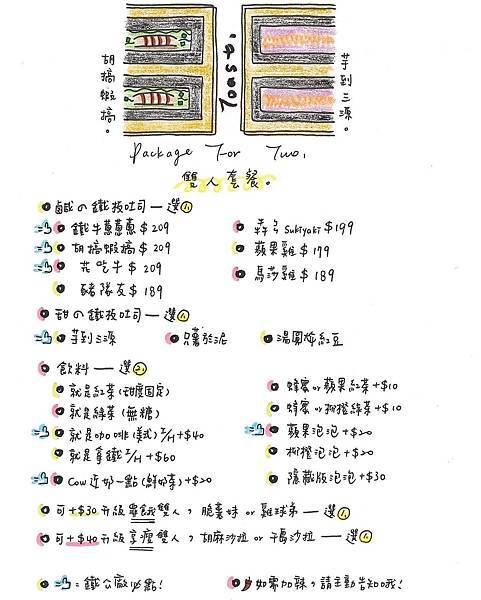 胡搞蝦搞。
Toast.
芋到三源。
Package For Two.
雙人套餐。
鹹の鐵板吐司一選①
鐵牛蔥蔥蔥 $209
胡搞蝦搞 $209
花吃牛 $209
豬隊友 $189
Sukiyaki $199
蘋果雞 $179
馬莎雞 $189
甜の鐵板吐司一選①
芋到三源
只薯於泥
湯圓 紅豆
飲料一選②
就是紅茶(甜度固定)
就是綠茶(無糖)
就是咖啡(美式)I/H+$40
就是拿鐵I/H+$60
Cow近奶一點(鮮奶茶)+$20
蜂蜜or蘋果紅茶+$10
蜂蜜or柳橙綠茶+$10
蘋果泡泡+$20
柳橙泡泡+$20
隱藏版泡泡+$30
可+$30升級 雙人,脆薯妹or雞球弟一選①
可+$40升級享瘦雙人,胡麻沙拉or千島沙拉一選①
=鐵公廠必點!
如需加辣,請主動告知哦!